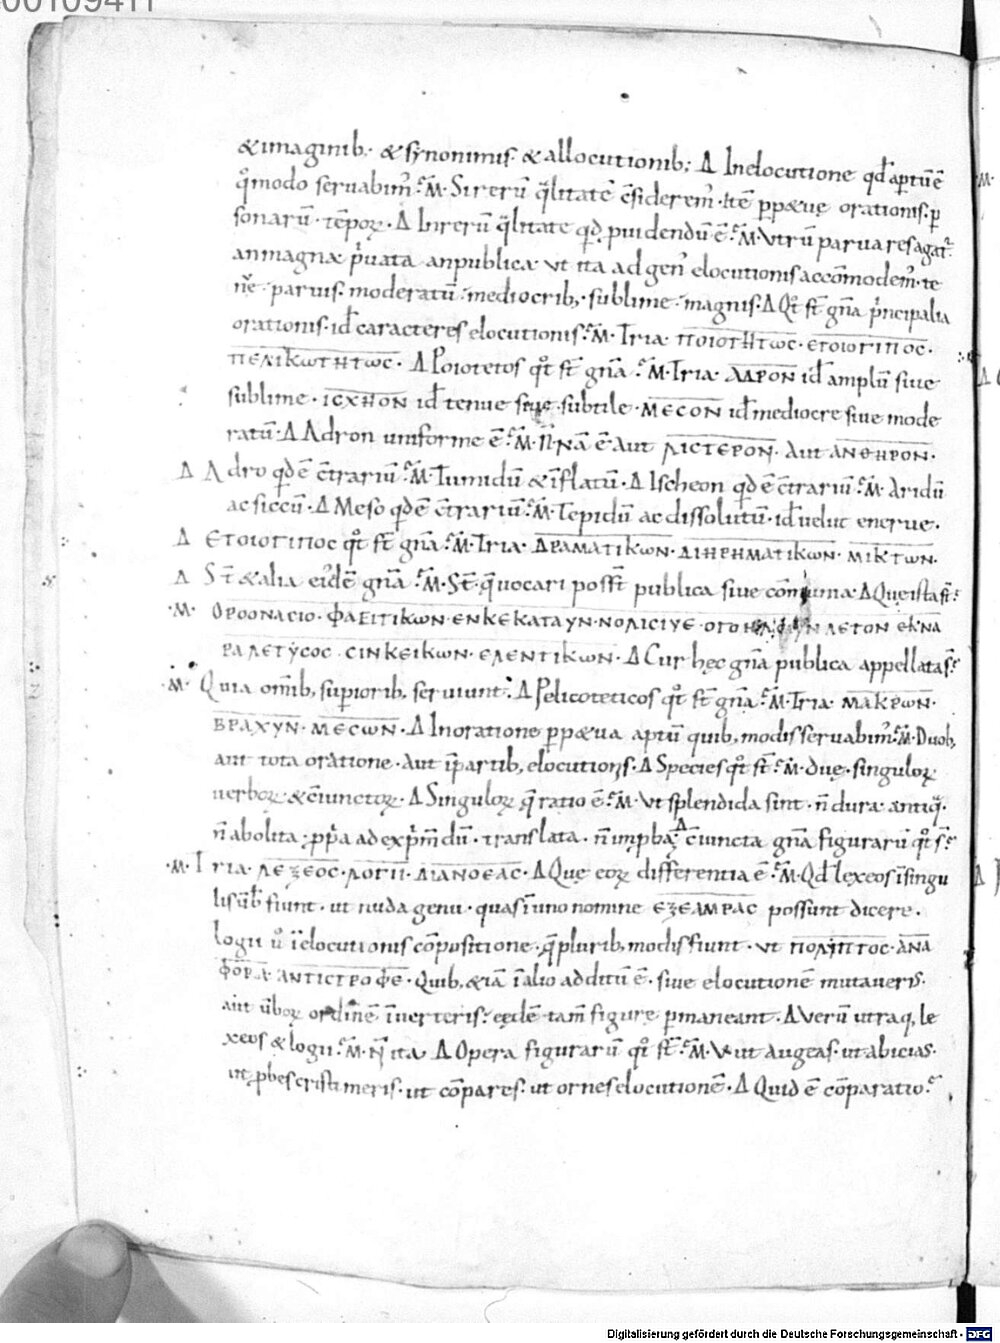 00109411
&imaginib; · & synonimis · & allocutionib; Δ In elocutione qđ aptū ē
qͦmodo servabim᷒ · M̃ · Si rerū q̅litatē c̅siderem᷒ · Itē p̱pęuę orationis · p̱
sonarū · tēpoꝝ · Δ In rerū q̅litate qđ pvidendū ē · M̃ · Utrū parva res agat᷒
an magna · p͛vata an publica · ut ita ad gen᷒ elocutionis accōmodem᷒ · te
nē · parvis · moderatū · mediocrib; · sublime · magnis · Δ Qͦt st̄ gn̄a p͛ncipalia
orationis · id caracteres elocutionis · M̃ · Tria · ΠΟΙΟΤΗΤωC · ΕΤΟΙΟΓΙΠΟC ·
ΠΕΛΙΚωΤΗΤωC · Δ Poiotetos qͦt st̄ gn̄a · M̃ · Tria · ΑΔΡΟΝ id amplū sive
sublime · ΙCΧΗΟΝ id tenue sive subtile · ΜΕCΟΝ id mediocre sive mode
ratū · Δ Adron uniforme ē · M̃ · N̄ · NĀ ē aut ΛΙCΤΕΡΟΝ · aut ΑΝΘΗΡΟΝ ·
Δ Adro qđ ē c̄trariū · M̃ · Tumidū & īflatū · Δ Ischeon qđ ē c̄trariū · M̃ · Aridū
ac siccū · Δ Meso qđ ē c̄trariū · M̃ · Tepidū ac dissolutū · id velut enerve ·
Δ ΕΤΟΙΟΓΙΠΟC qͦt st̄ gn̄a · M̃ · Tria · ΔΡΑΜΑΤΙΚωΝ · ΔΙΗΡΗΜΑΤΙΚωΝ · ΜΙΚΤωΝ ·
Δ St̄ & alia eidē gn̄a · M̃ · St̄ · q̄ vocari posst̄ publica sive cōmuna · Δ Que ista st̄
· M · ΟΡΘΟΝΑCΙΟ · ΦΑΕΙΤΙΚωΝ · ΕΝΚΕΚΑΤΑΥΝ · ΝΟΛΙCΙΥΕ · ΛΕΤΟΝ ΕΚΝΑ
ΡΑΛΕΤΥCΟC · CΙΝΚΕΙΚωΝ · ΕΛΕΝΤΙΚωΝ · Δ Cur hęc gn̄a publica appellata st̄
· M · Quia om̄ib; supiorib; serviunt · Δ Pelicoteticos qͦt st̄ gn̄a · M̃ · Tria · ΜΑΚΡωΝ ·
ΒΡΑΧΥΝ · ΜΕCωΝ · Δ In oratione p̱pęua aptū quib; modis servabim᷒ · M̃ · Duob;
aut tota oratione · aut ī partib; elocutionis · Δ Species qͦt st̄ · M̃ · duę · singuloꝝ
verboꝝ & c̄iunctoꝝ · Δ Singuloꝝ q̄ ratio ē · M̃ · Ut splendida sint · n̄ dura · antiq̄ ·
n̄ abolita · p̱p͛a ad exp͛m̄dū · translata · n̄ imp̱ba · Δ C̄iuncta gn̄a figurarū qͦt st̄
· M · Tria · ΛΕΞΕΟC · ΛΟΓΙΙ · ΔΙΑΝΟΕΑC · Δ Quę eoꝝ differentia ē · M̃ · Qđ lexeos ī singu
lis ūb̄ fiunt · ut nuda genu · quasi uno nomine ΕΞΕΑΜΡΑC possunt dicere ·
logii ūͦ ī elocutionis cōpositione · q̄ plurib; modis fiunt · ut ΠΟΛΙΠΤΟC · ΑΝΑ
ΦΟΡΑ · ΑΝΤΙCΤΡΟΦΕ · Quib; &iā ī alio additū ē · sive elocutionē mutaveris ·
aut ūboꝝ ordinē īverteris · eędē tam̄ figurę p̱maneant · Δ Verū utraq; le
xeos & logii · M̃ · N̄ ita · Δ Opera figurarū qͦt st̄ · M̃ · V · ut augeas · ut abicias ·
ut p̱bes cristi meris · ut cōpares · ut ornes elocutionē · Δ Quid ē cōparatio ·
Digitalisierung gefördert durch die Deutsche Forschungsgemeinschaft - DFG